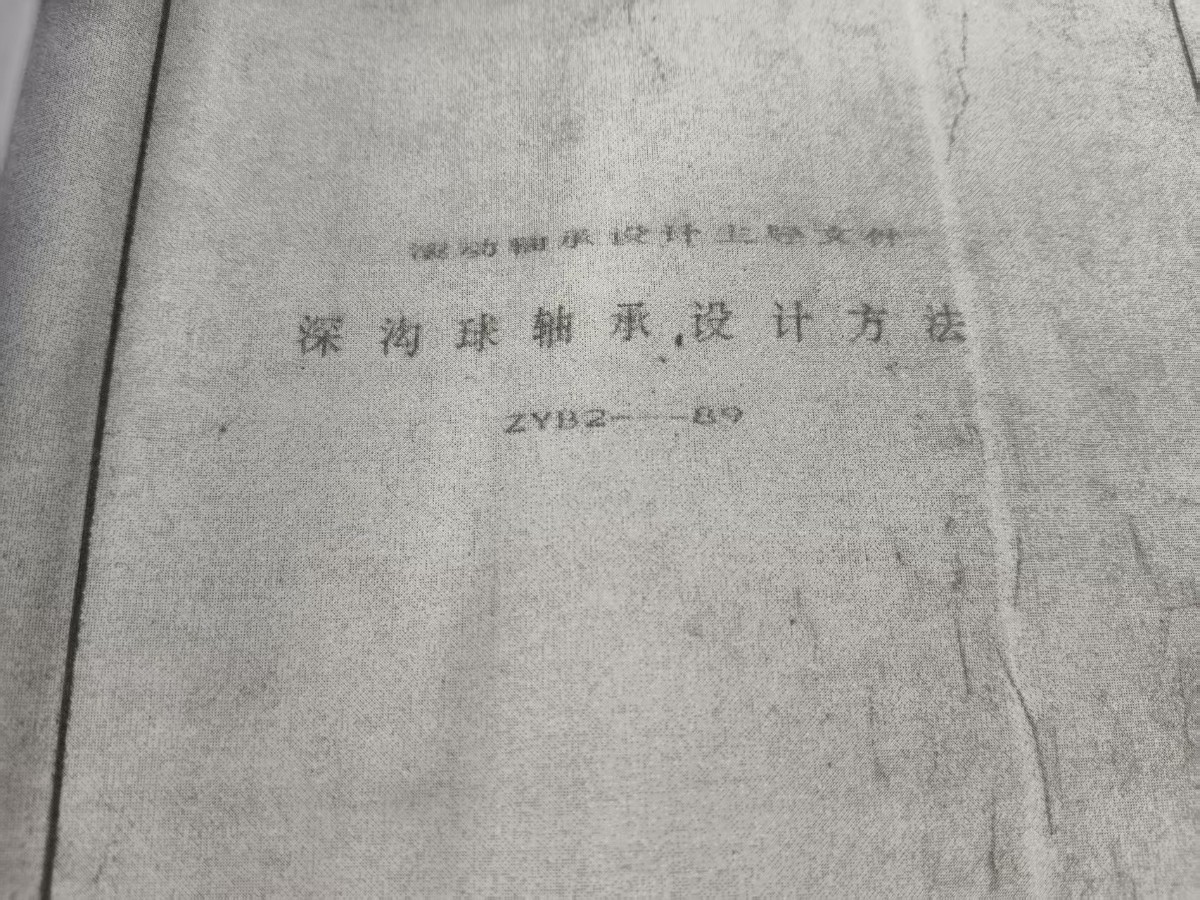 滚动轴承设计主导文件
深沟球轴承设计方法
ZYB2——89